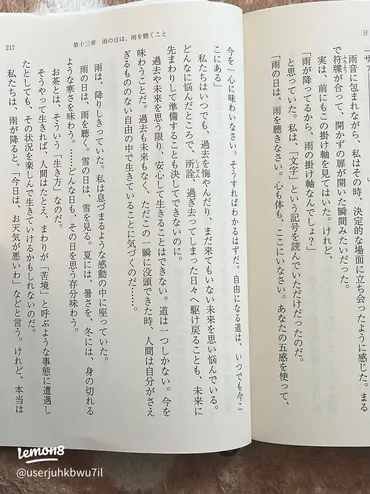 日
雨音に包まれながら、私はその時、決定的な場面に立ち会ったように感じた。まる
で符牒が合って、開かずの扉が開いた瞬間みたいだった。
実は、前にもこの掛け軸を見てはいた。けれど、
「雨が降ってるから、雨の掛け軸なんでしょ？」
と思っていた。私は、「文字」という記号を読んでいただけだったのだ。
「雨の日は、雨を聴きなさい。心も体も、ここにいなさい。あなたの五感を使って、
217 第十三章 雨の日は、雨を聴くこと
今を一心に味わいなさい。そうすればわかるはずだ。自由になる道は、いつでも今こ
こにある」
私たちはいつでも、過去を悔やんだり、まだ来てもいない未来を思い悩んでいる。
どんなに悩んだところで、所詮、過ぎ去ってしまった日々へ駆け戻ることも、未来に
先まわりして準備することも決してできないのに。
過去や未来を思う限り、安心して生きることはできない。道は一つしかない。今を
味わうことだ。過去も未来もなく、ただこの一瞬に没頭できた時、人間は自分がさえ
ぎるもののない自由の中で生きていることに気づくのだ……。
雨は、降りしきっていた。私は息づまるような感動の中に座っていた。
雨の日は、雨を聴く。雪の日は、雪を見る。夏には、暑さを、冬には、身の切れる
ような寒さを味わう。……どんな日も、その日を思う存分味わう。
お茶とは、そういう「生き方」なのだ。
そうやって生きれば、人間はたとえ、まわりが「苦境」と呼ぶような事態に遭遇し
たとしても、その状況を楽しんで生きていけるかもしれないのだ。
私たちは、雨が降ると、「今日は、お天気が悪いわ」などと言う。けれど、本当は
Lemon8
@userjuhkbwu7il